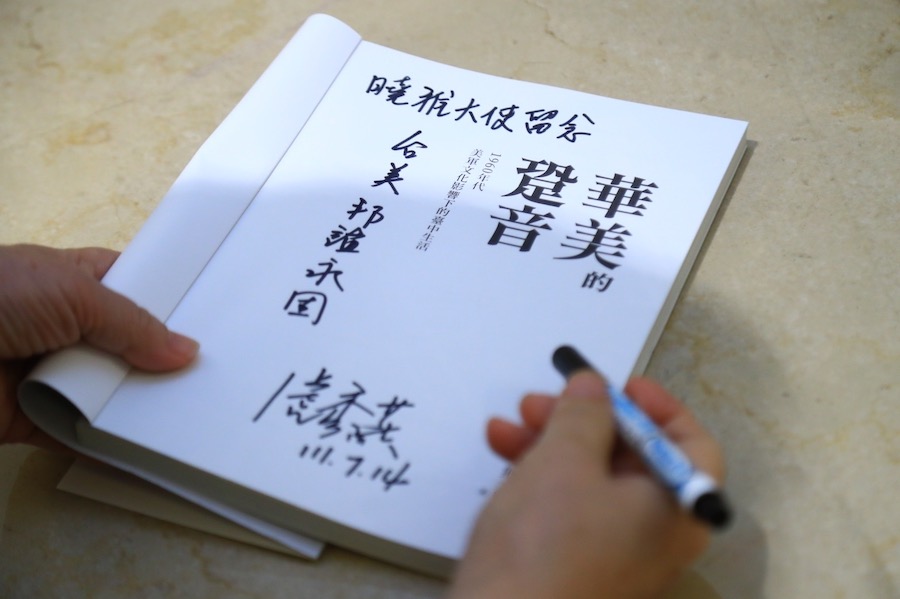 曉雅大使留念
華美的
跫音
1960年代
美軍文化影響下的臺中生活
台美邦誼永固
盧秀燕
111.7.14